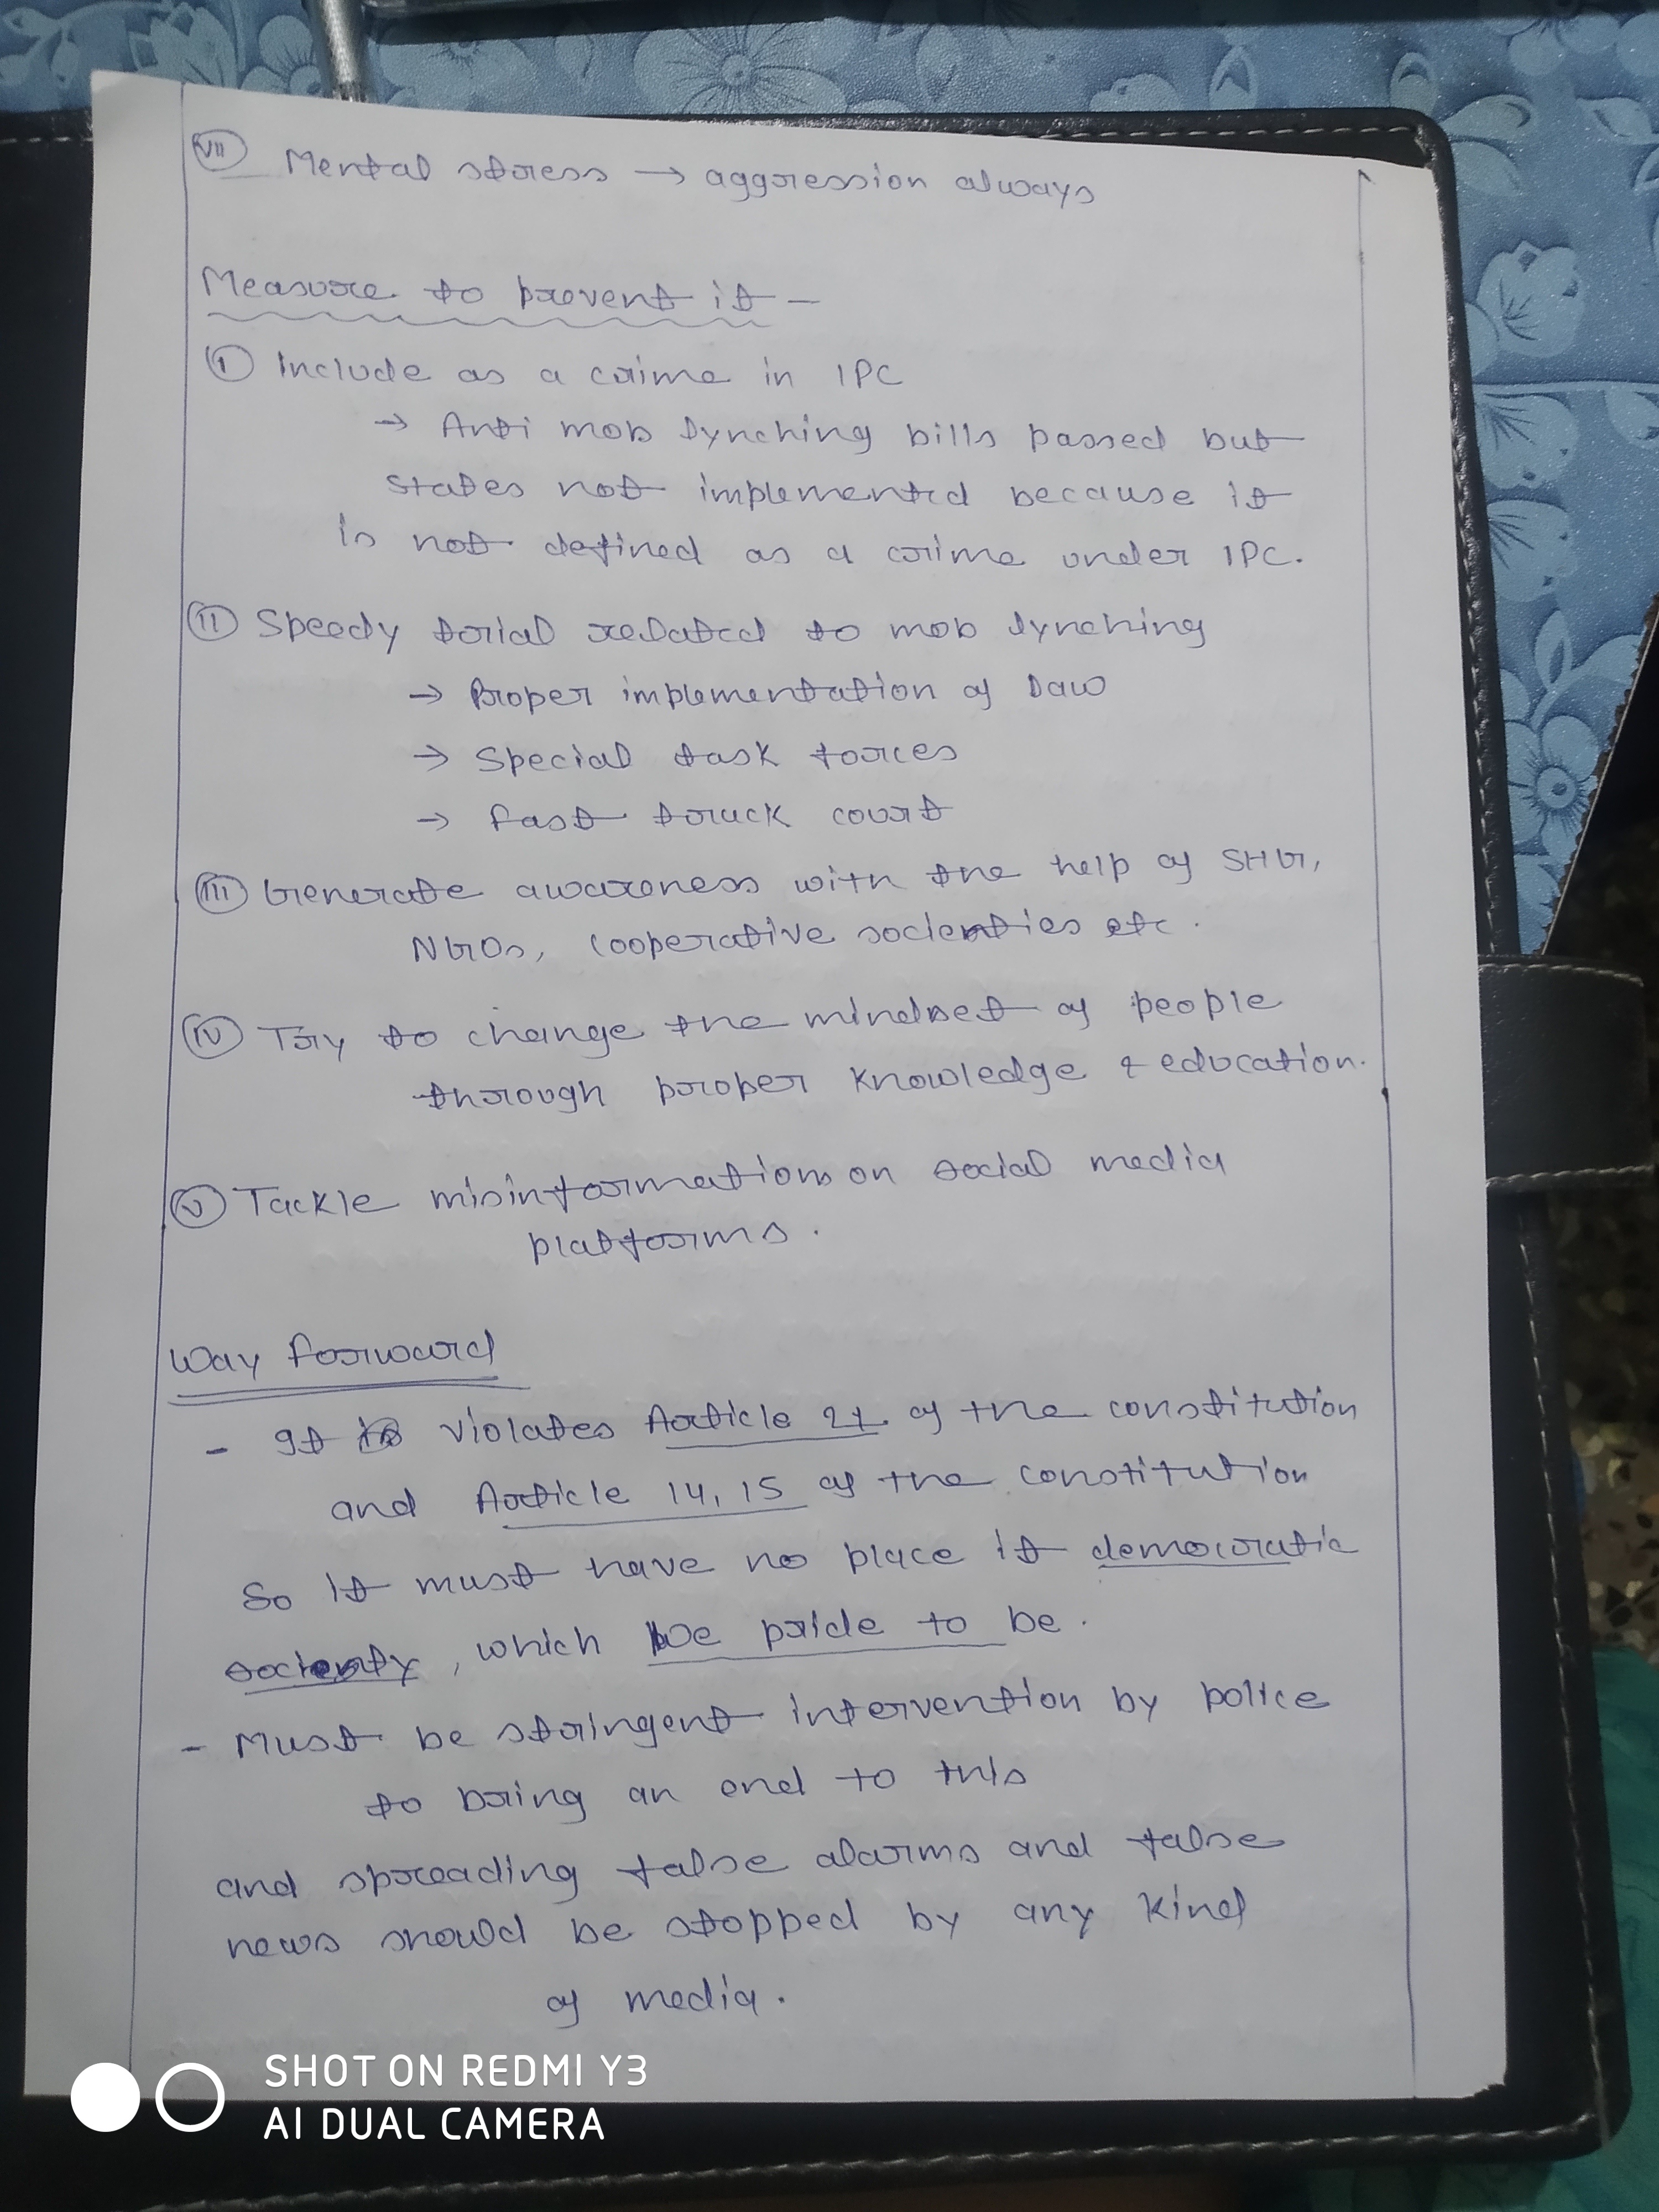 VII Mental stress → aggression always
Measure to prevent it -
I Include as a crime in IPC
→ Anti mob lynching bills passed but
states not implemented because it
is not defined as a crime under IPC.
II Speedy trial related to mob lynching
→ Proper implementation of law
→ Special task forces
→ fast track court
III Generate awareness with the help of SHG,
NGOs, cooperative socienties etc.
IV Try to change the mindset of people
through proper knowledge & education.
V Tackle misinformations on social media
platforms.
Way forward
- It violates Article 21 of the constitution
and Article 14, 15 of the constitution
So it must have no place it democratic
socienty, which we pride to be.
- Must be stringent intervention by police
to bring an end to this
and spreading false alarms and false
news should be stopped by any kind
of media.
SHOT ON REDMI Y3
AI DUAL CAMERA